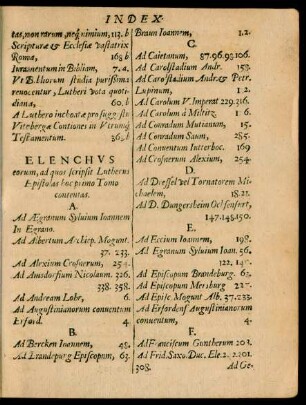 INDEX
tas, non rarum, neq; nimium, 113. b
Scripturæ & Ecclesiæ vastatrix
Roma, 168. b
Iuramentum in Bibliam, 7. a.
Vt Bibliorum studia purissima
revocentur, Lutheri vota quoti-
diana, 60. b
A Luthero inchoatæ pro sugg. stu
Vitebergæ Contiones in Vtrumq;
Testamentum. 36. b
ELENCHVS
eorum, ad quos scripsit Lutherus
Epistolas hoc primo Tomo
contentas.
A.
Ad Ægranum Syluium Ioannem
In Egrano.
Ad Albertum Archiep. Mogunt.
37. 233.
Ad Alexium Crosnerum, 254.
Ad Amsdorfium Nicolaum. 226.
338. 358.
Ad Andream Lohr, 6.
Ad Augustinianorum conuentum
Erford. 4.
B.
Ad Bercken Ioannem, 45.
Ad Brandeburg Episcopum, 63.
Braun Ioannem, 1. 2.
C.
Ad Caietanum, 87. 96. 93. 106.
Ad Carolstadium Andr. 153.
Ad Carolstadium Andr. & Petr.
Lupinum, 1. 2.
Ad Carolum V. Imperat 229. 316.
Ad Carolum à Miltitz, 1. 6.
Ad Conradum Mutianum, 15.
Ad Conradum Saum, 285.
Ad Conuentum Iutterboc. 169
Ad Crosnerum Alexium, 254
D.
Ad Dressel vel Tornatorem Mi-
chaelem, 18. 22.
Ad D. Dungersheim Ochsenfurt,
147. 148. 150.
E.
Ad Eccium Ioannem, 198.
Ad Egranum Syluium Ioan. 56.
Ad Episcopum Brandeburg. 63.
Ad Episcopum Mersburg 227.
Ad Episc Mogunt Alb. 37. 233.
Ad Erfordens Augustinianorum
conuentum, 4.
F.
Ad Franciscum Guntherum 203.
Ad Frid. Saxo. Duc. Ele. 2. 201.
308. Ad Ge-